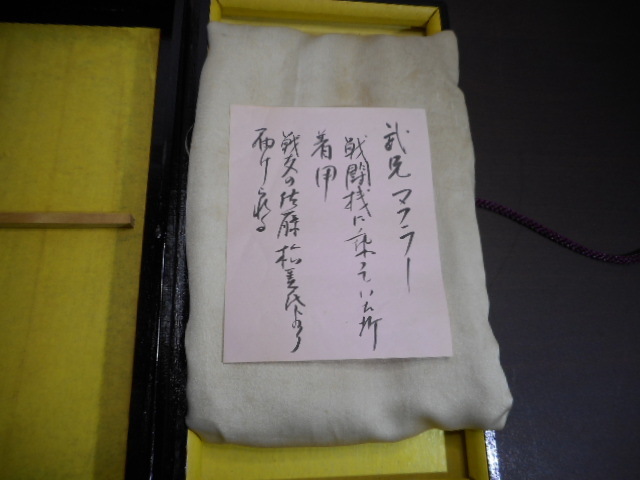 武兄 マフラー
戦闘機に乗っていた所
着用
戦友の佐藤 松美氏より
届け来る